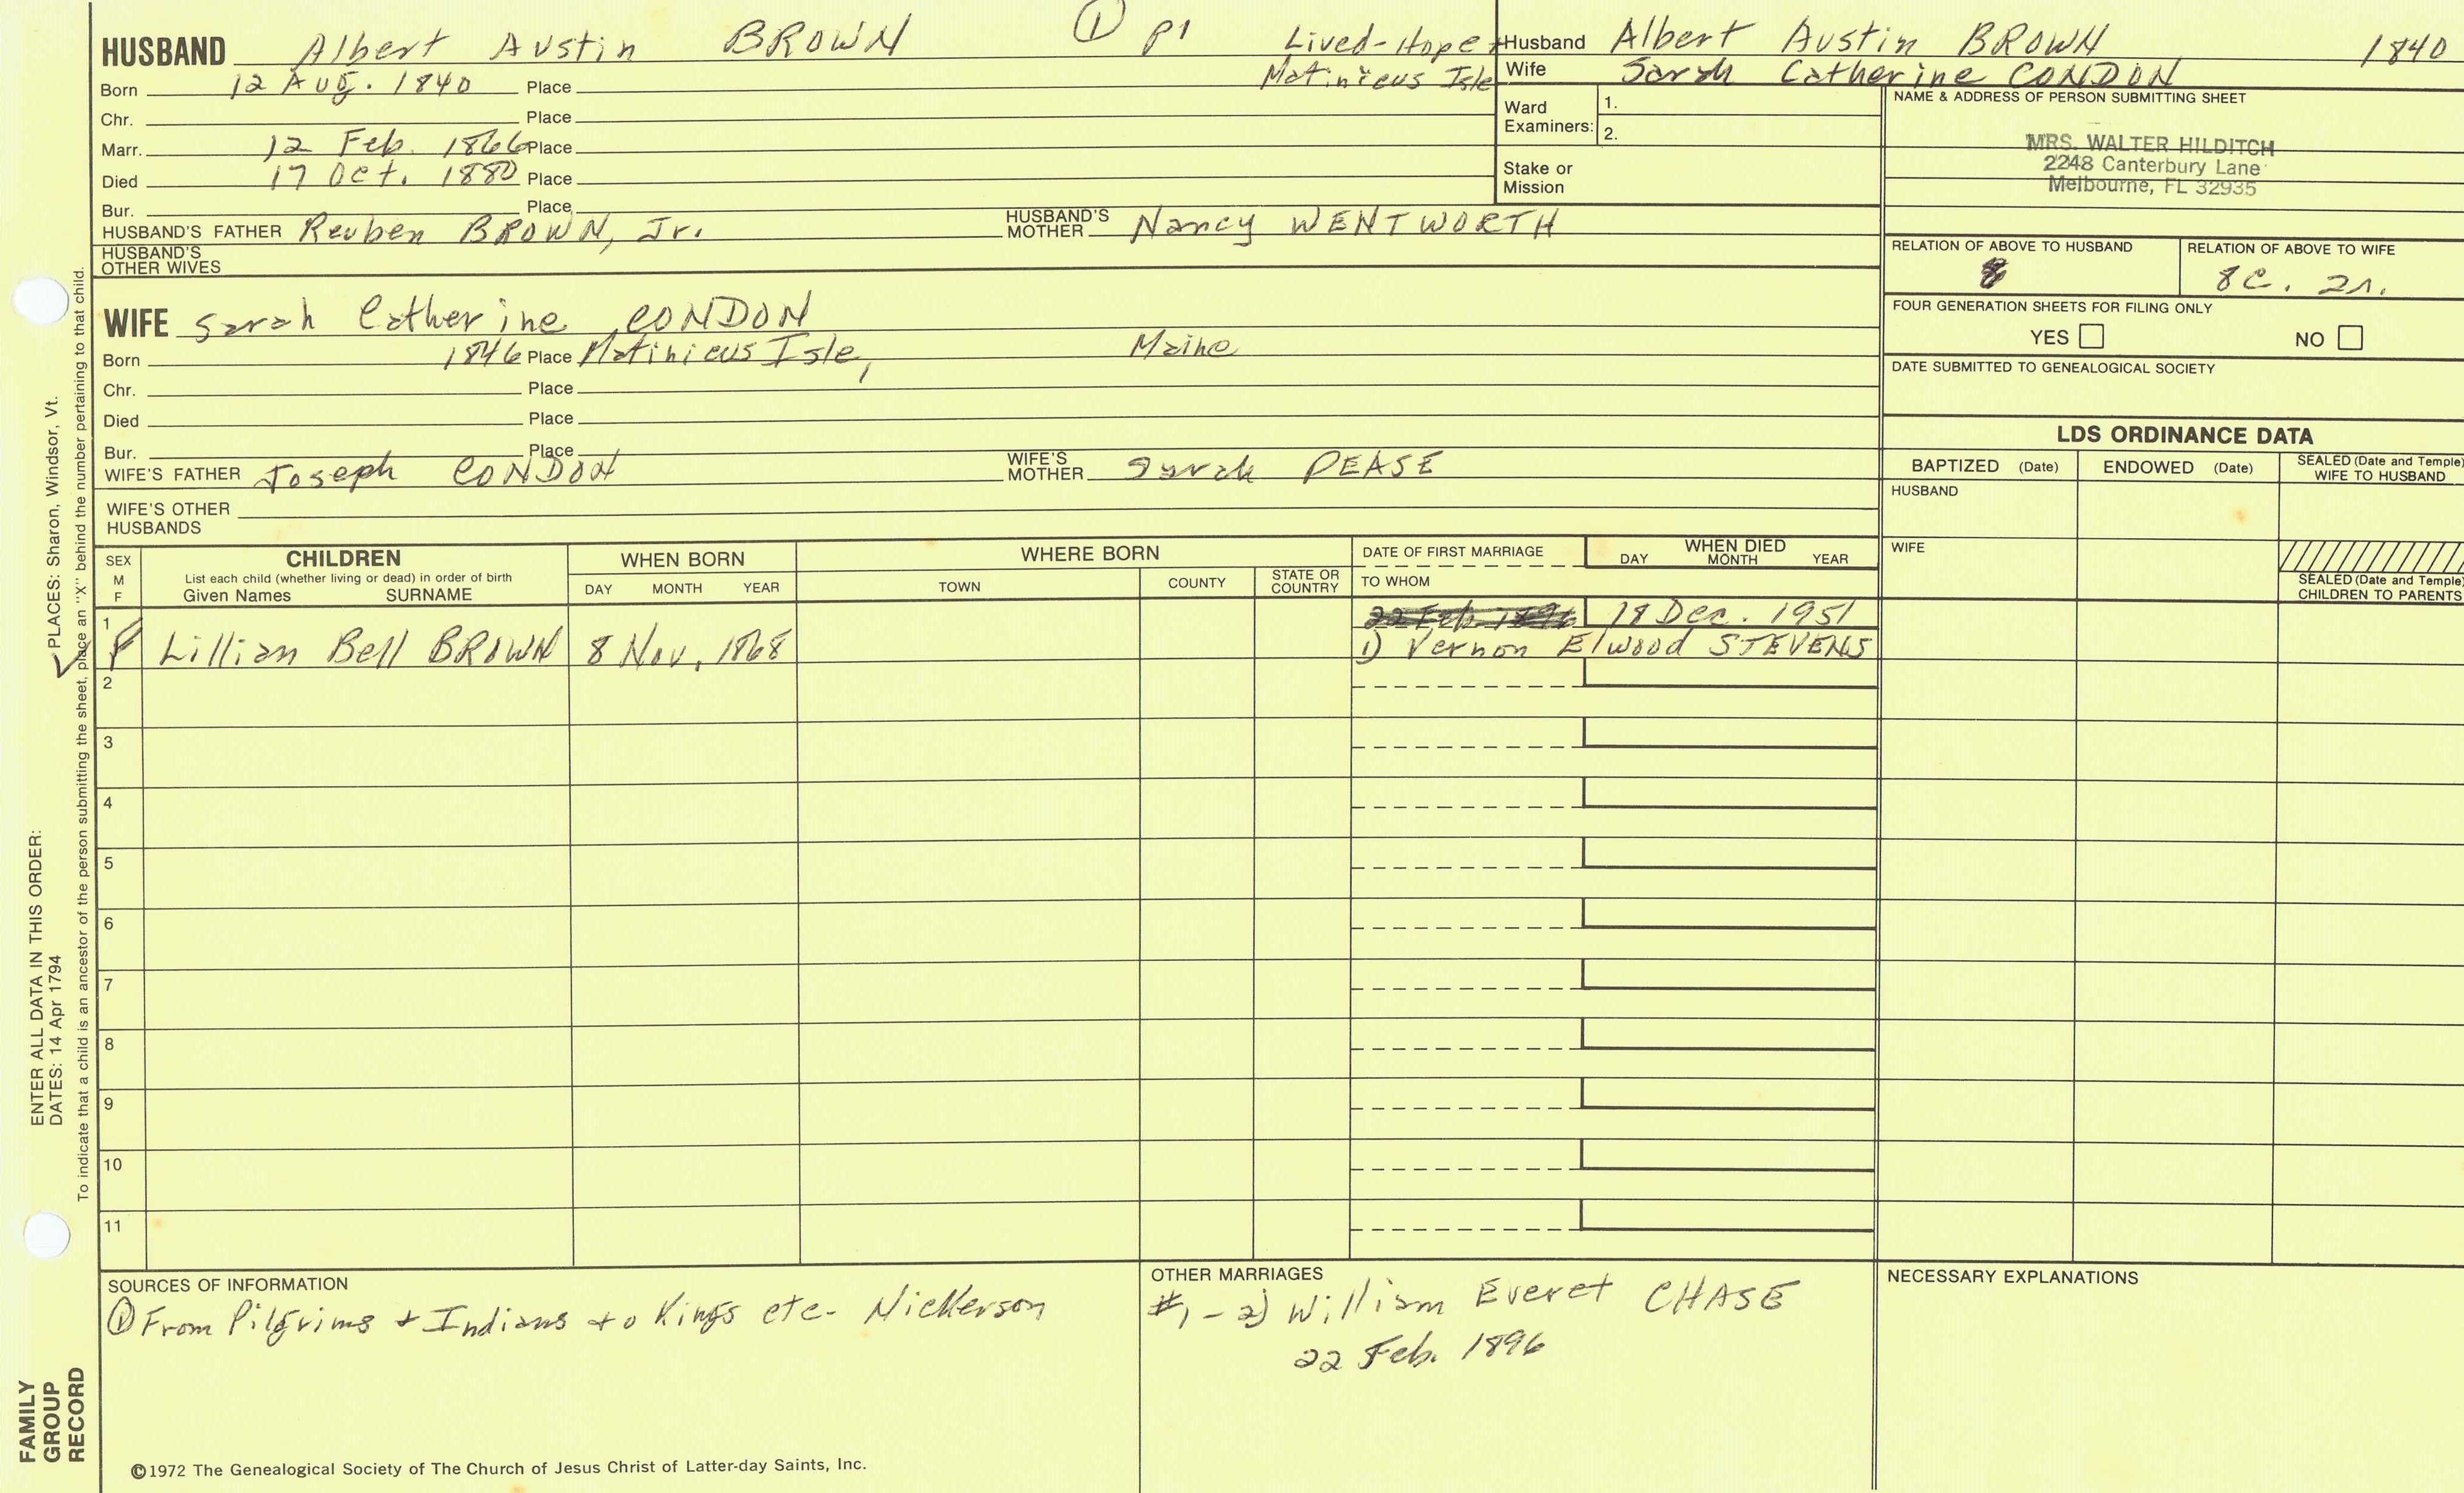 HUSBAND Albert Austin BROWN ① P1 Lived-Hope +
Matinicus Isle
Born 12 Aug. 1840 Place
Chr. Place
Marr. 12 Feb. 1866 Place
Died 17 Oct. 1880 Place
Bur. Place
HUSBAND'S FATHER Reuben BROWN, Jr. HUSBAND'S MOTHER Nancy WENTWORTH
HUSBAND'S OTHER WIVES
WIFE Sarah Catherine CONDON
Born 1846 Place Matinicus Isle, Maine
Chr. Place
Died Place
Bur. Place
WIFE'S FATHER Joseph CONDON WIFE'S MOTHER Sarah PEASE
WIFE'S OTHER HUSBANDS
Husband Albert Austin BROWN 1840
Wife Sarah Catherine CONDON
Ward Examiners: 1.
2.
Stake or Mission
NAME & ADDRESS OF PERSON SUBMITTING SHEET
MRS. WALTER HILDITCH
2248 Canterbury Lane
Melbourne, FL 32935
RELATION OF ABOVE TO HUSBAND RELATION OF ABOVE TO WIFE
8C. 2r.
FOUR GENERATION SHEETS FOR FILING ONLY
YES NO
DATE SUBMITTED TO GENEALOGICAL SOCIETY
LDS ORDINANCE DATA
BAPTIZED (Date) ENDOWED (Date) SEALED (Date and Temple) WIFE TO HUSBAND
HUSBAND
WIFE
SEALED (Date and Temple) CHILDREN TO PARENTS
SEX M F
CHILDREN
List each child (whether living or dead) in order of birth
Given Names SURNAME
WHEN BORN
DAY MONTH YEAR
WHERE BORN
TOWN COUNTY STATE OR COUNTRY
DATE OF FIRST MARRIAGE
TO WHOM
WHEN DIED
DAY MONTH YEAR
22 Feb. 1896 18 Dec. 1951
1 F Lillian Bell BROWN 8 Nov, 1868 1) Vernon Elwood STEVENS
2
3
4
5
6
7
8
9
10
11
SOURCES OF INFORMATION
① From Pilgrims + Indians to Kings etc- Nickerson
OTHER MARRIAGES
#1 - 2) William Everet CHASE
22 Feb. 1896
NECESSARY EXPLANATIONS
©1972 The Genealogical Society of The Church of Jesus Christ of Latter-day Saints, Inc.
FAMILY GROUP RECORD
ENTER ALL DATA IN THIS ORDER:
DATES: 14 Apr 1794 PLACES: Sharon, Windsor, Vt.
To indicate that a child is an ancestor of the person submitting the sheet, place an "X" behind the number pertaining to that child.